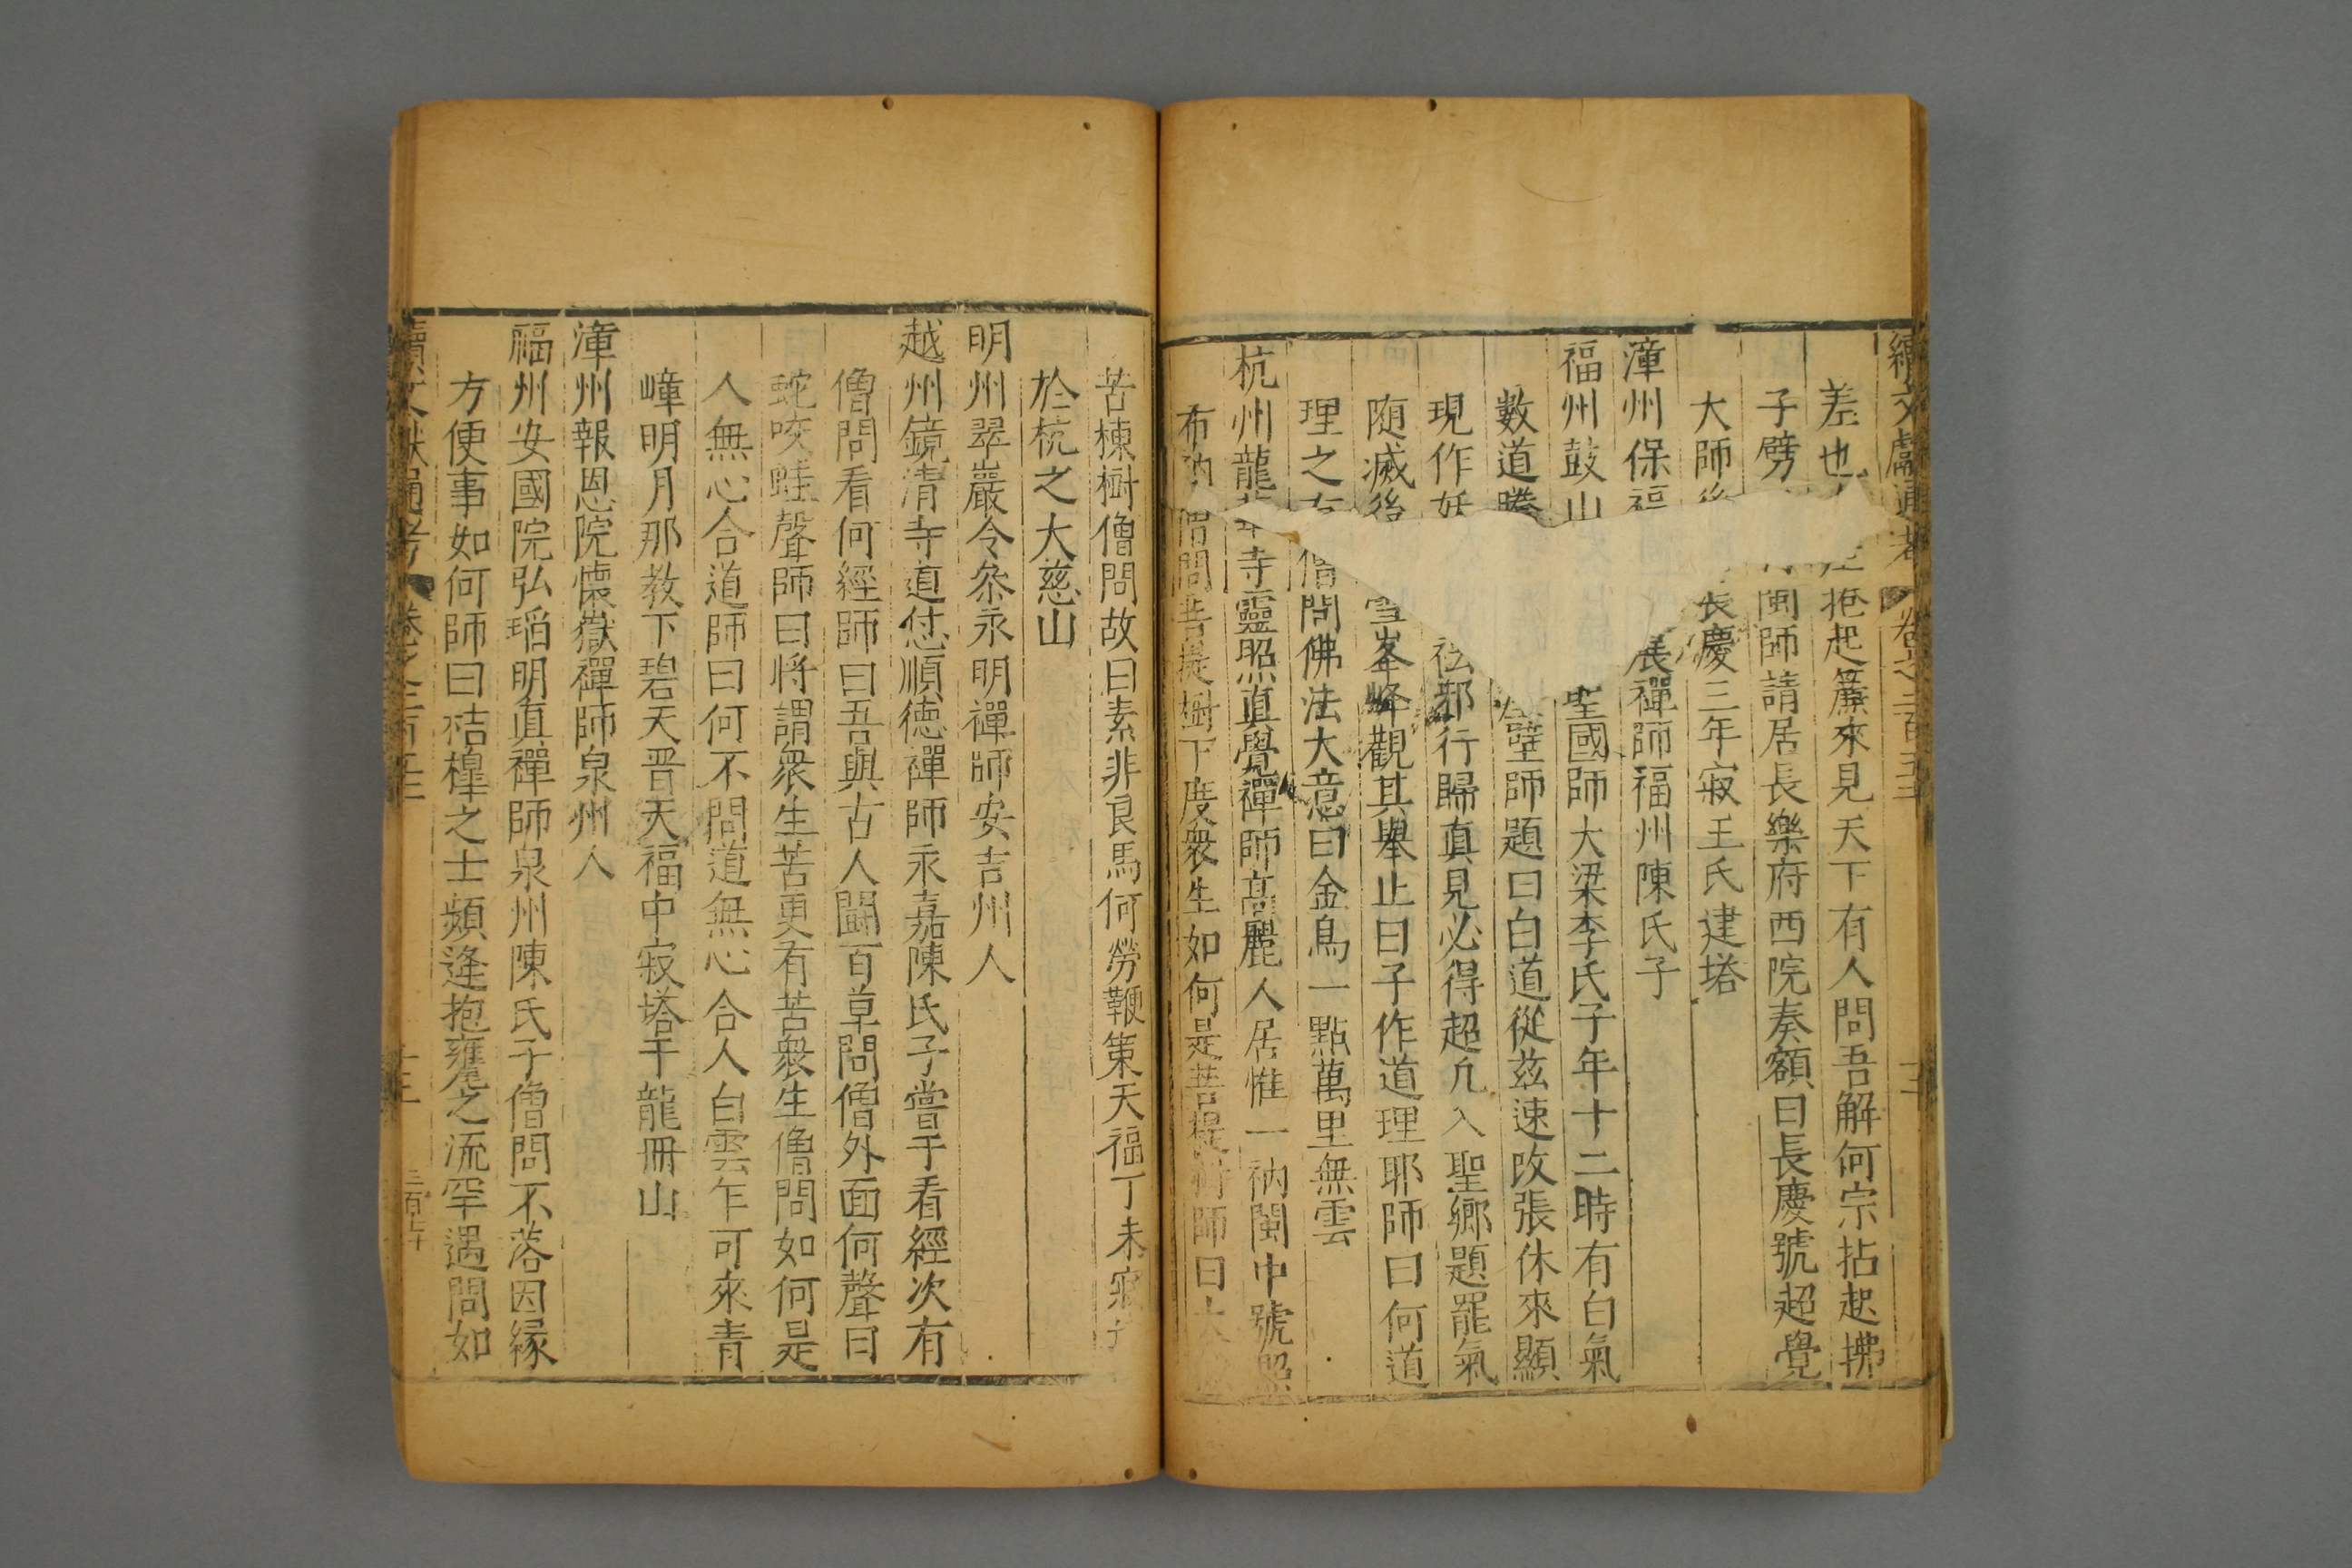 續文獻通考 卷之二百五十三 十二
差也 捲起簾來見天下有人問吾解何宗拈起拂
子劈 閩師請居長樂府西院奏額曰長慶號超覺
大師後 長慶三年寂王氏建塔
漳州保福 展禪師福州陳氏子
福州鼓山 聖國師大梁李氏子年十二時有白氣
數道騰 壁師題曰白道從兹速改張休來顯
現作妖 祛邪行歸真見必得超凡入聖鄉題罷氣
隨滅後 雪峯峰觀其舉止曰子作道理耶師曰何道
理之有 僧問佛法大意曰金烏一點萬里無雲
杭州龍華寺靈照真覺禪師高麗人居惟一衲閩中號照
布衲 僧問菩提樹下度衆生如何是菩提樹師曰大
苦楝樹僧問故曰素非良馬何勞鞭策天福丁未寂
於杭之大慈山
明州翠巖令叅永明禪師安吉州人
越州鏡清寺道怤順德禪師永嘉陳氏子嘗于看經次有
僧問看何經師曰吾與古人鬬百草問僧外面何聲曰
蛇咬蛙聲師曰將謂衆生苦更有苦衆生僧問如何是
人無心合道師曰何不問道無心合人白雲乍可來青
嶂明月那教下碧天晋天福中寂塔于龍冊山
漳州報恩院懷嶽禪師泉州人
福州安國院弘瑫明真禪師泉州陳氏子僧問不落因緣
方便事如何師曰桔槔之士頻逢抱甕之流罕遇問如
續文獻通考 卷之二百五十三 十二 三百七十